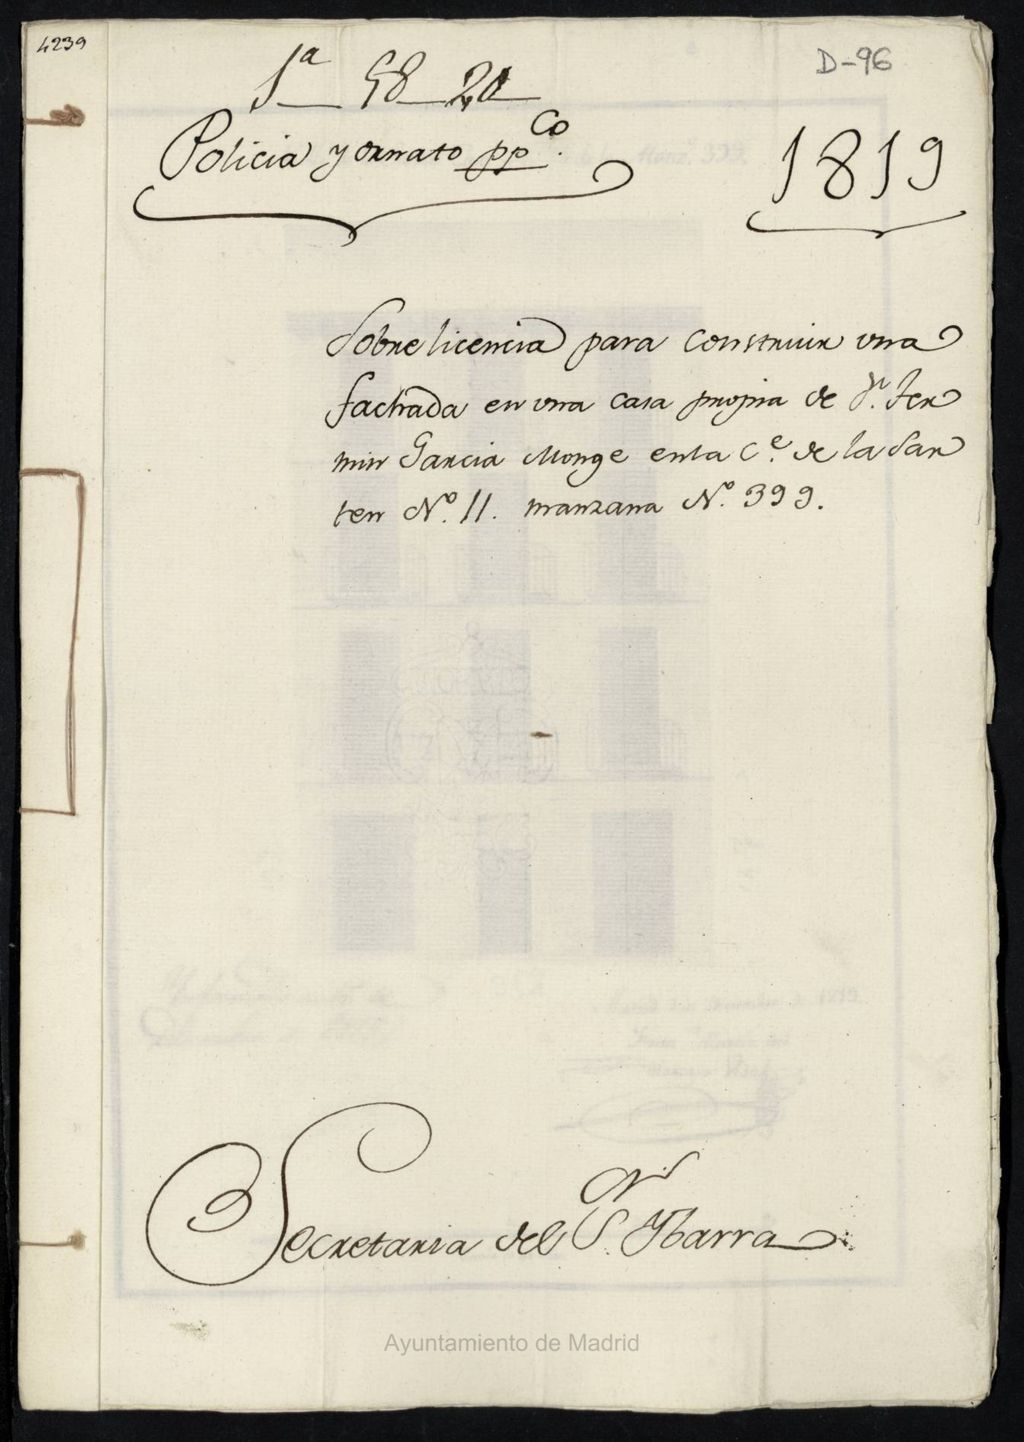 4239
D-96
1ª 58 20
Policia y ornato ppco.
1819
Sobre licencia para construir una
fachada en una casa propia de Dn. Fer
min Garcia Monge en la Ce. de la Sar
ten No. 11. manzana No. 399.
Secretaria del Sr. Ybarra
Ayuntamiento de Madrid